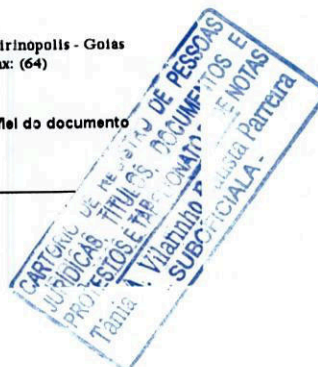 irinópolis - Goiás
ax: (64)
fiel do documento
CARTÓRIO DE REGISTRO DE PESSOAS
JURÍDICAS, TÍTULOS, DOCUMENTOS E
PROTESTOS E TABELIONATO DE NOTAS
Tânia Vilarinho Parreira
SUBOFICIALA -